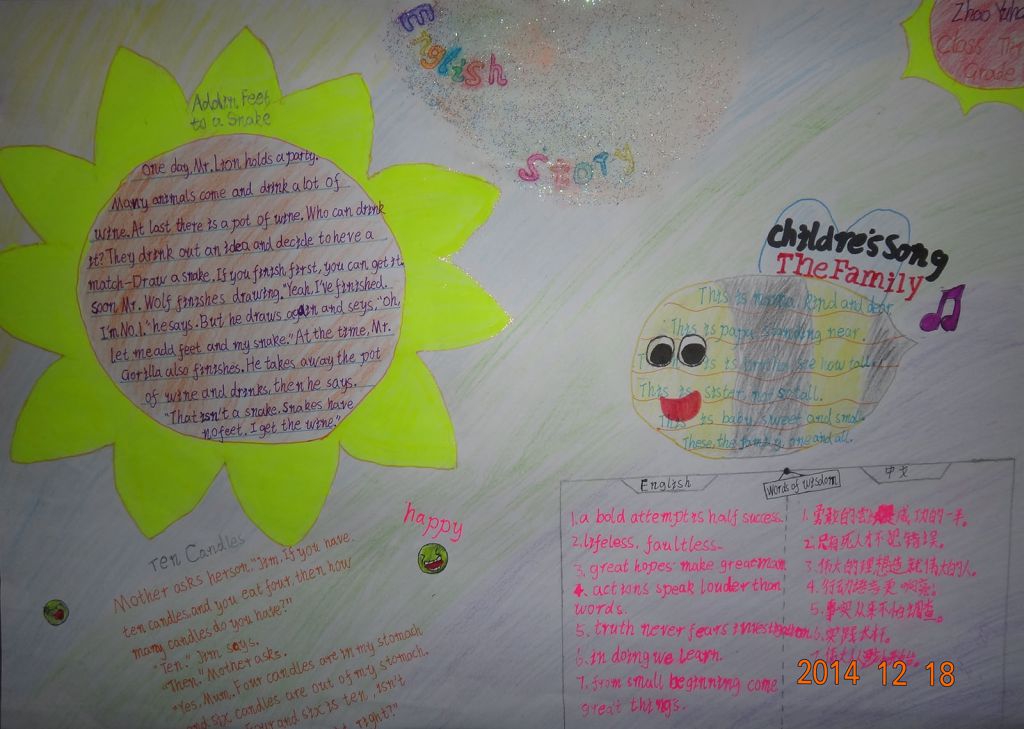 English
Story
Zhao
Class
Grade
Addin Feet
to a Snake
One day, Mr. Lion holds a party.
Many animals come and drink a lot of
wine. At last there is a pot of wine. Who can drink
it? They drink out an idea and decide to heve a
match-Draw a snake. If you finish first, you can get it.
Soon Mr. Wolf finishes drawing. "Yeah, I've finished.
I'm No.1." he says. But he draws again and seys, "Oh,
let me add feet and my snake." At the time, Mr.
Gorilla also finishes. He takes away the pot
of wine and drinks, then he says.
"That isn't a snake. Snakes have
no feet. I get the wine."
childre's Song
The Family
This is mama, kind and dear.
This is papa, standing near.
This is see how tall.
This is sister, not so tall.
This is baby, sweet and small.
These, the family, one and all.
happy
Ten Candles
Mother asks her son. "Jim. If you have
ten candles, and you eat four, then how
many candles do you have?"
"Ten." Jim says.
"Then." Mother asks.
"Yes, Mum. Four candles are in my stomach
and six candles are out of my stomach.
Four and six is ten, isn't
right?"
Words of Wisdom
English
1. a bold attempt is half success.
2. lifeless, faultless.
3. great hopes make great man
4. actions speak louder than
words.
5. truth never fears investigation.
6. in doing we learn.
7. from small beginning come
great things.
中文
1. 勇敢的 是成功的一半。
2. 只有死人才不犯错误。
3. 伟大的理想造就伟大的人。
4. 行动 更响亮;
5. 事实从来不怕调查。
6. 实践
7. 伟大
2014 12 18